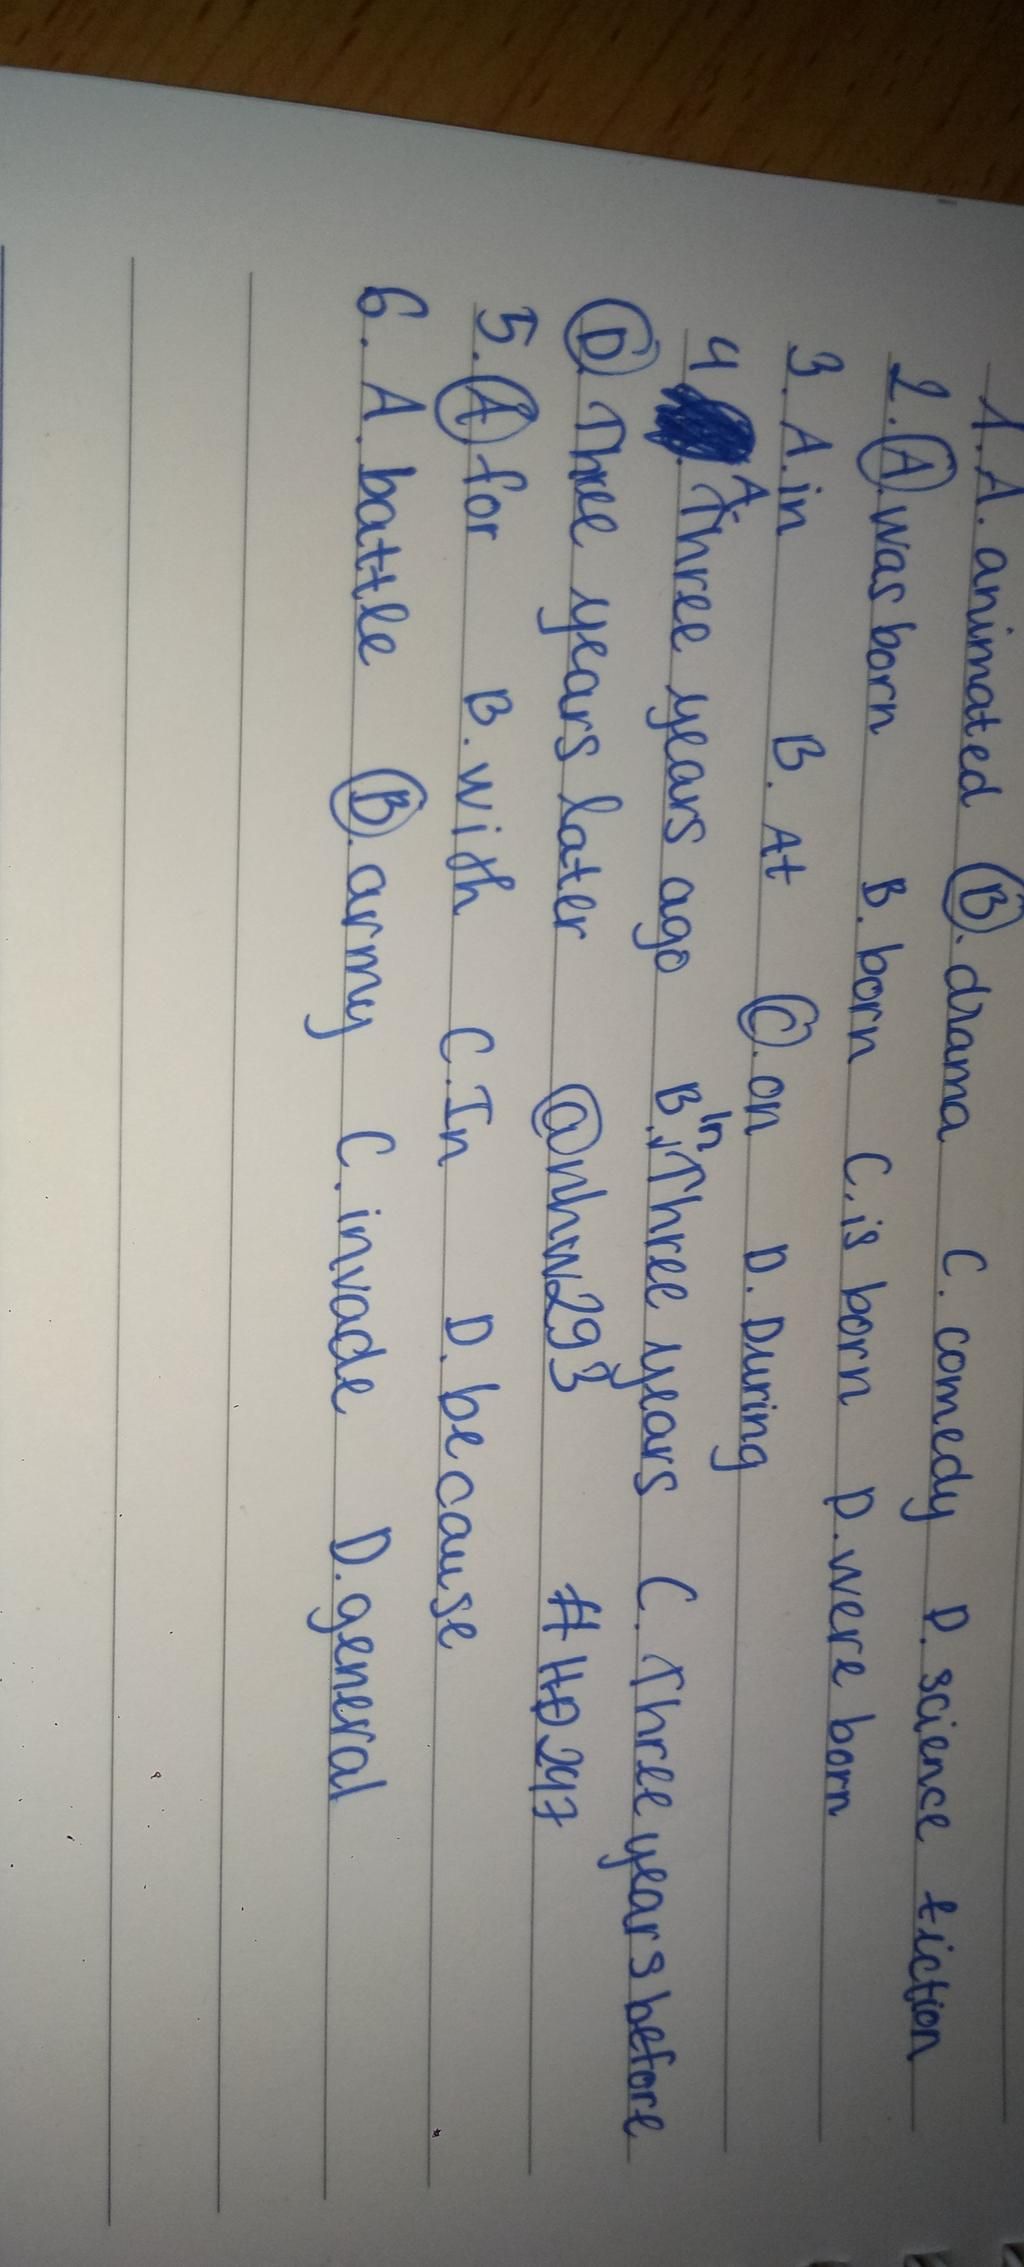 1. A. animated B. drama C. comedy D. science fiction
2. A. was born B. born C. is born D. were born
3. A. in B. At C. on D. During
4 A. Three years ago B. in Three years C. Three years before
D. Three years later @nhw293 #HD247
5. A for B. with C. In D. because
6. A. battle B. army C. invade D. general